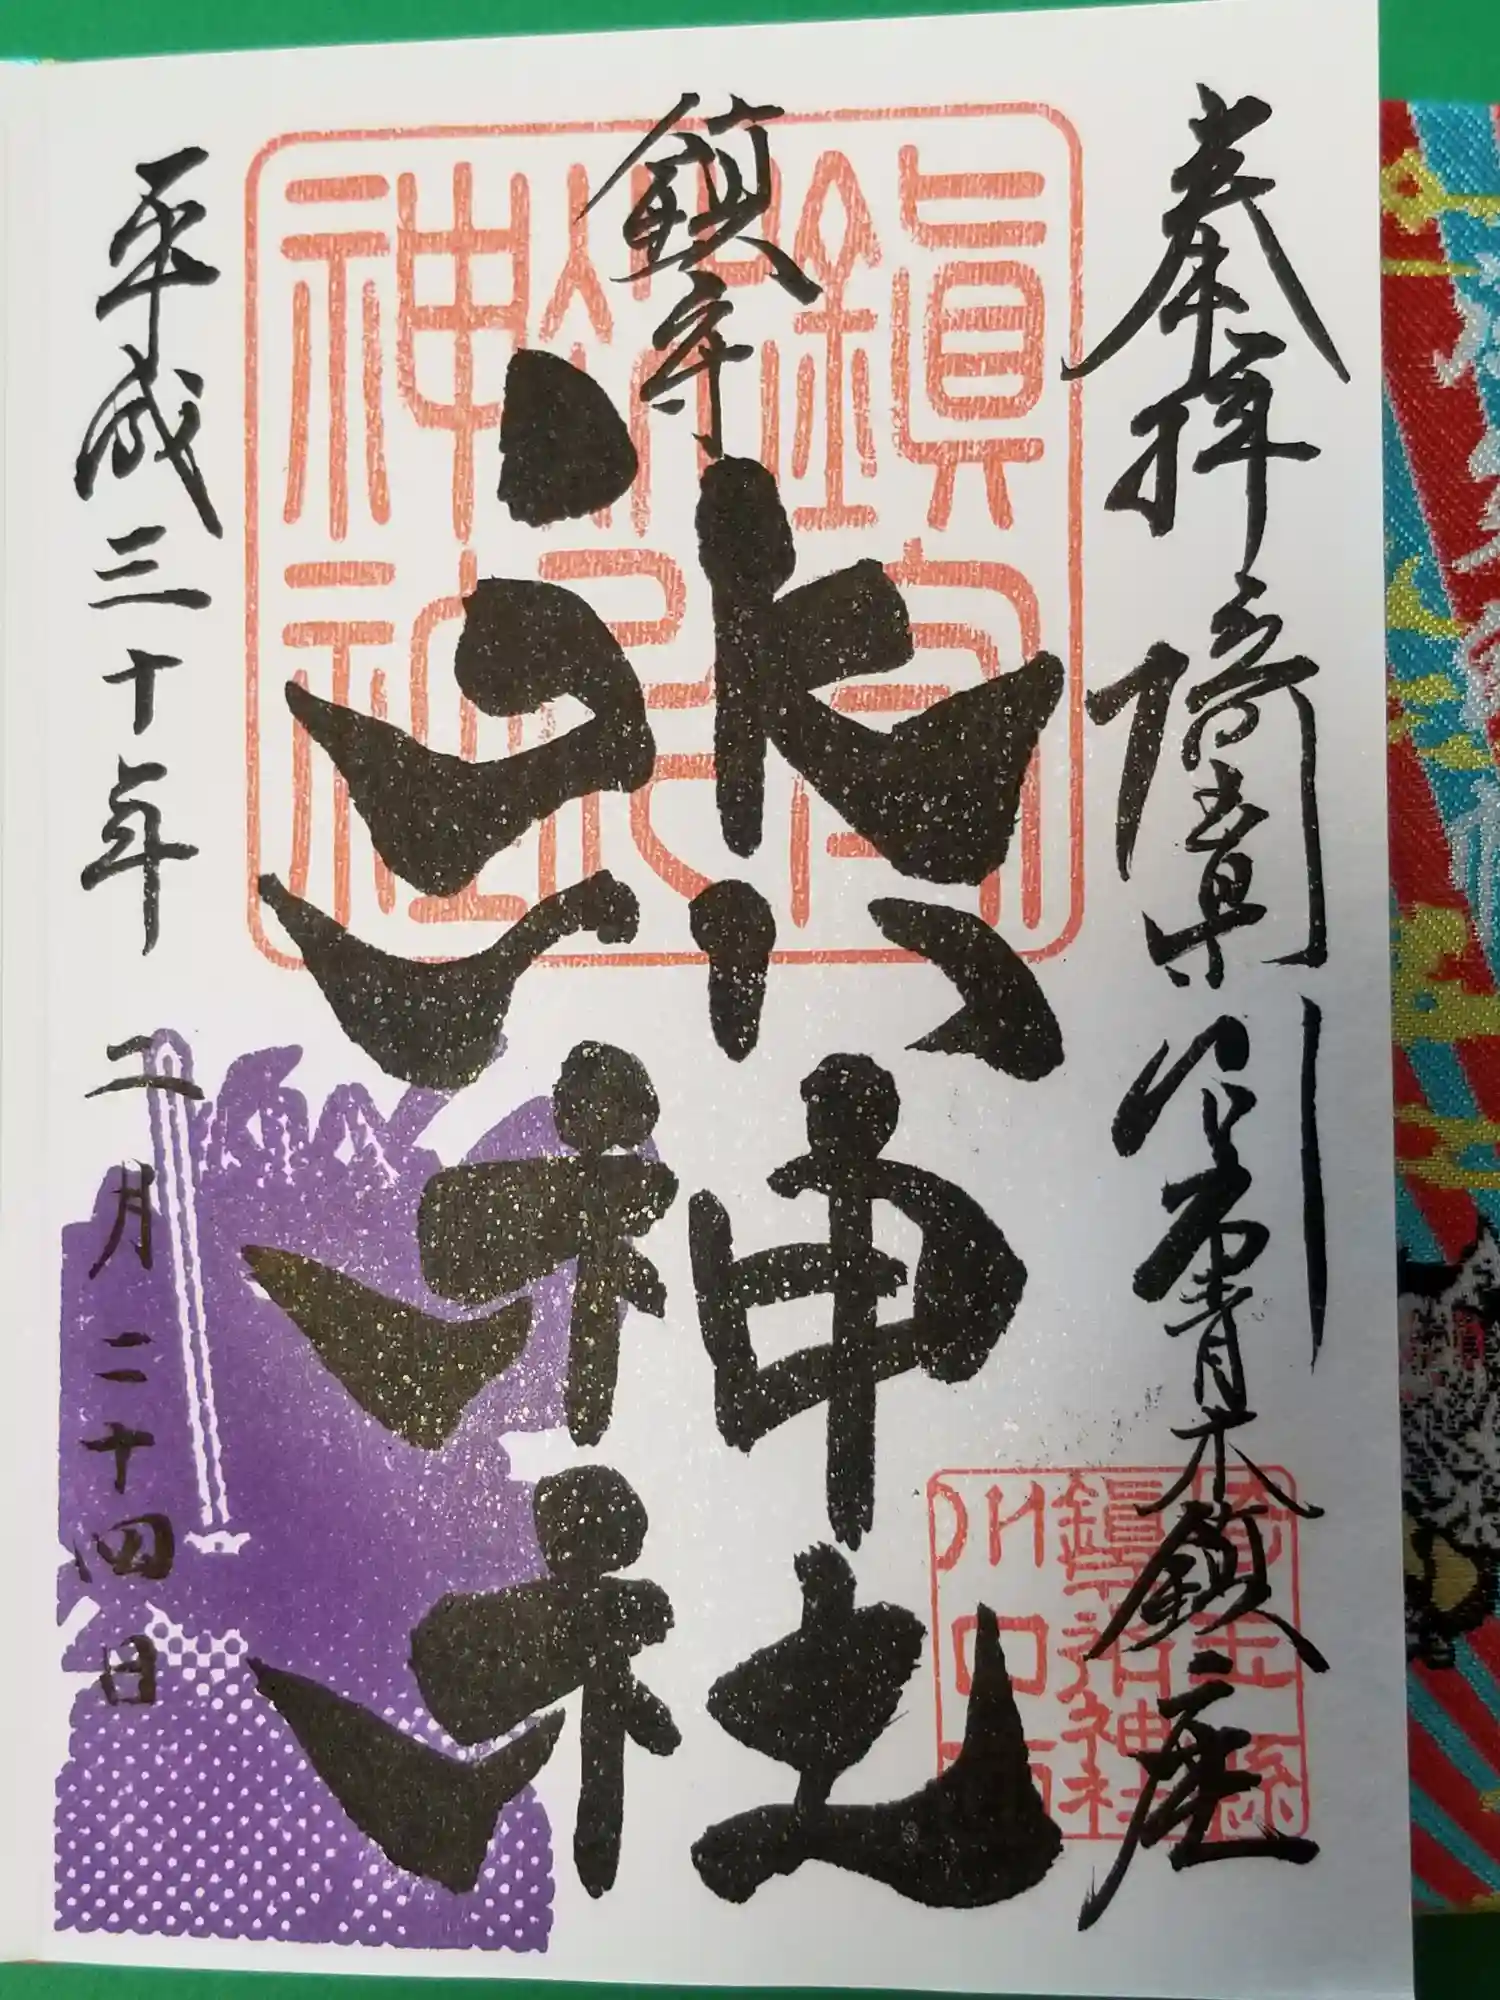 奉拝 埼玉県川口市青木鎮座
鎮守
氷川神社
平成三十年 二月二十四日
鎮守
氷川
神社
埼玉縣
鎮守氷川神社
川口市